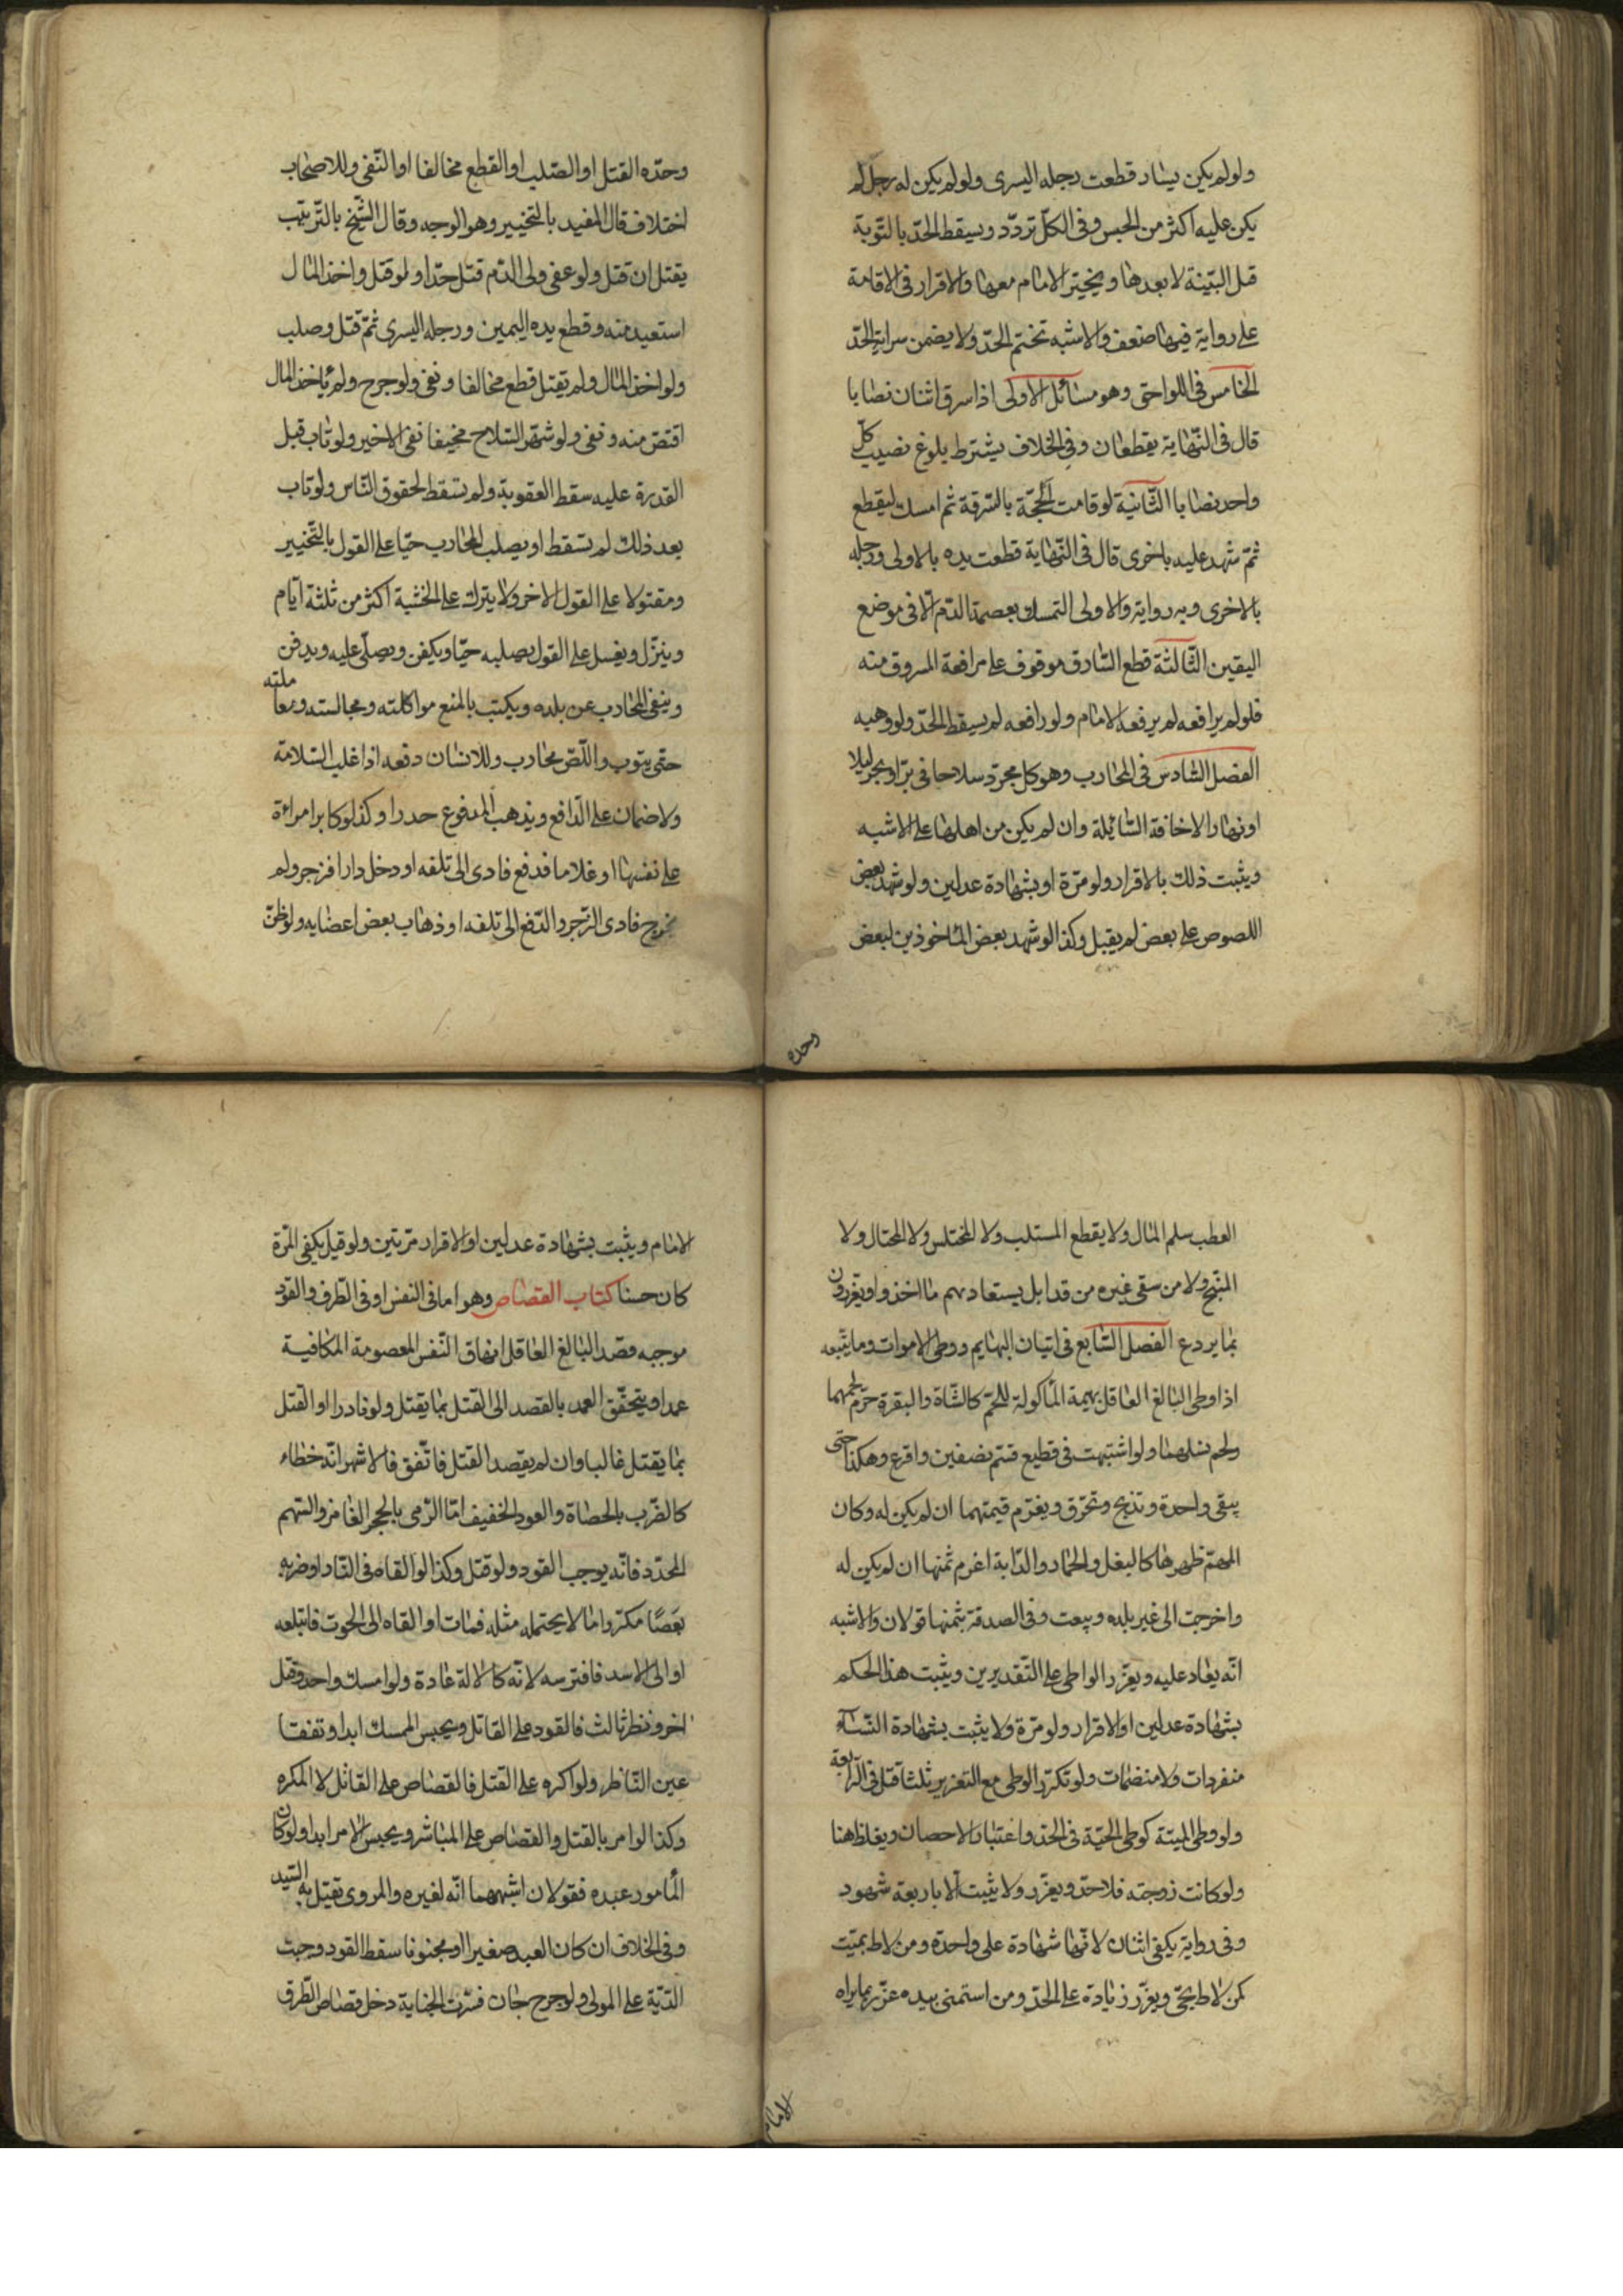 ولو لم يكن يسار قطعت رجله اليسرى ولو لم يكن له رجل لم
يكن عليه اكثر من الحبس وفى الكلّ تردّد ويسقط الحدّ بالتّوبة
قبل البيّنة لا بعدها ويتخيّر الامام معها والاقرار فى الاقامة
على رواية فيها ضعف والاشبه تحتم الحدّ ولا يضمن سراية الحدّ
الخامس فى اللواحق وهو مسائل الاولى اذا سرق اثنان نصابا
قال فى النّهاية يقطعان وفى الخلاف يشترط بلوغ نصيب كلّ
واحد نصابا الثّانية لو قامت الحجّة بالسّرقة ثم امسك ليقطع
ثمّ شهد عليه باخرى قال فى النّهاية قطعت يده بالاولى ورجله
بالاخرى وبه رواية والاولى التمسك بعصمة الدّم الّا فى موضع
اليقين الثّالثة قطع السّارق موقوف على مرافعة المسروق منه
فلو لم يرافعه لم يرفعه الامام ولو رافعه لم يسقط الحدّ ولو وهبه
الفصل السّادس فى المحارب وهو كل مجرّد سلاحا فى برّ او بحر ليلا
او نهارا لاخافة السّابلة وان لم يكن من اهلها على الاشبه
ويثبت ذلك بالاقرار ولو مرّة او بشهادة عدلين ولو شهد بعض
اللصوص على بعض لم يقبل وكذا لو شهد بعض المأخوذين لبعض
وحدّه
وحدّه القتل او الصّلب او القطع مخالفا او النّفى وللاصحاب
اختلاف قال المفيد بالتخيير وهو الوجه وقال الشّيخ بالتّرتيب
يقتل ان قتل ولو عفى ولى الدّم قتل حدّا ولو قتل واخذ المال
استعيد منه وقطع يده اليمين ورجله اليسرى ثمّ قتل وصلب
ولو اخذ المال ولم يقتل قطع مخالفا ونفى ولو جرح ولم يأخذ المال
اقتصّ منه ونفى ولو شهّر السّلاح مخيفا نفى لا غير ولو تاب قبل
القدرة عليه سقط العقوبة ولم تسقط لحقوق النّاس ولو تاب
بعد ذلك لم تسقط او يصلب المحارب حيّا على القول بالتّخيير
ومقتولا على القول الاخر ولا يترك على الخشبة اكثر من ثلثة ايّام
وينزّل ويغسل على القول بصلبه حيّا ويكفن ويصلّى عليه ويدفن
وينفى المحارب عن بلده ويكتب بالمنع مواكلته ومجالسته ومعاملته
حتى يتوب واللّصّ محارب وللانسان دفعه اذا غلب السّلامة
ولا ضمان على الدّافع ويذهب المدفوع هدرا وكذا لو كابر امراءة
على نفسها او غلاما فدفع فادى الى تلفه او دخل دارا فزجر ولم
يخرج فادى الزّجر والدّفع الى تلفه او ذهاب بعض اعضايه ولو ظنّ
العطب سلم المال ولا يقطع المستلب ولا المختلس ولا المحتال ولا
المبنّج ولا من سقى غيره مرقدا بل يستعاد منهم ما اخذوا ويعزّرون
بما يردع الفصل السّابع فى اتيان البهايم ووطى الاموات وما يتّبعه
اذا وطى البالغ العاقل بهيمة المأكولة للحم كالشّاة والبقرة حرّم لحمها
ولحم نسلها ولو اشتبهت فى قطيع قسّم نصفين واقرع وهكذا حتى
يبقى واحدة وتذبح وتحرّق ويغرّم قيمتها ان لم يكن له وكان
المهمّ ظهرها كالبغل والحمار والدّابة اغرم ثمنها ان لم يكن له
واخرجت الى غير بلده وبيعت وفى الصدقة بثمنها قولان والاشبه
انّه يعاد عليه ويعزّر الواطى على التّقديرين ويثبت هذا الحكم
بشهادة عدلين او الاقرار ولو مرّة ولا يثبت بشهادة النّساء
منفردات ولا منضمات ولو تكرّر الوطى مع التعزير ثلثا قتل فى الرّابعة
ولو وطى الميتة كوطى الحيّة فى الحدّ واعتبار الاحصان ويغلظ هنا
ولو كانت زوجته فلا حدّ ويعزّر ولا يثبت الّا باربعة شهود
وفى رواية يكفى اثنان لانّها شهادة على واحدة ومن لاط بميّت
كمن لاط بحىّ ويعزّر زيادة على الحدّ ومن استمنى بيده عزّر بما يراه
الامام
الامام ويثبت بشهادة عدلين او الاقرار مرّتين ولو قيل يكفى المرّة
كان حسنا كتاب القصاص وهو اما فى النفس او فى الطّرف والقود
موجبه قصد البالغ العاقل ازهاق النّفس المعصومة المكافية
عمدا ويتحقّق العمد بالقصد الى القتل بما يقتل ولو نادرا او القتل
بما يقتل غالبا وان لم يقصد القتل فاتّفق فالاشهر انّه خطاء
كالضّرب بالحصاة والعود الخفيف امّا الرّمى بالحجر الغامز والسّهم
المحدّد فانّه يوجب القود ولو قتل وكذا لو القاه فى النّار او ضربه
بعصًا مكرّرا ما لا يحتمله مثله فمات او القاه الى الحوت فابتلعه
او الى الاسد فافترسه لانّه كالالة عادة ولو امسك واحد وقتل
اخر ونظر ثالث فالقود على القاتل ويحبس الممسك ابدا وتفقا
عين النّاظر ولو اكره على القتل فالقصاص على القاتل لا المكره
وكذا لو امر بالقتل والقصاص على المباشر ويحبس الامر ابدا ولو كان
المأمور عبده فقولان اشبههما انّه لغيره والمروى يقتل به السّيد
وفى الخلاف ان كان العبد صغيرا او مجنونا سقط القود وجبت
الدّيّة على المولى ولو جرح جان فسرت الجناية دخل قصاص الطّرف